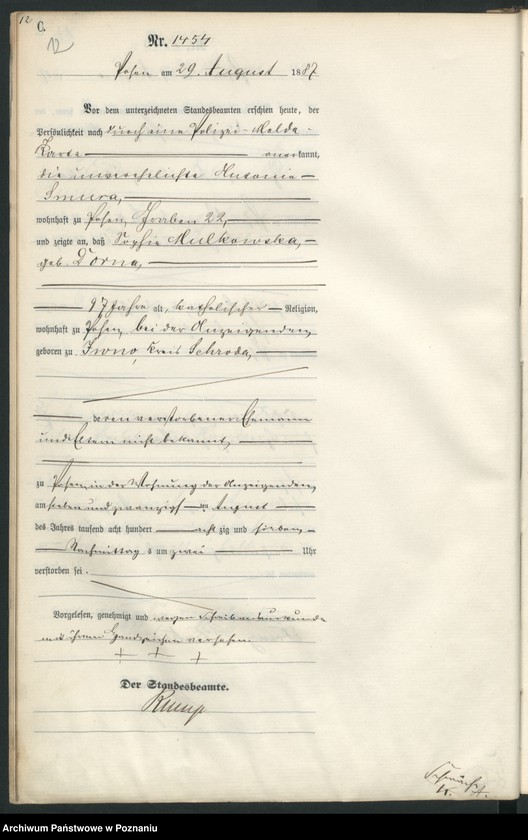 12
C.
12
Nr. 1454
Posen am 29. August 1887
Vor dem unterzeichneten Standesbeamten erschien heute, der
Persönlichkeit nach durch eine Polizei-Melde-
Karte anerkannt,
die unverehelichte Antonie
Smura,
wohnhaft zu Posen, Graben 22,
und zeigte an, daß Sophie Mulkowska,
geb. Dorna,
97 Jahre alt, katholischer Religion,
wohnhaft zu Posen, bei der Anzeigenden,
geboren zu Iwno, Kreis Schroda,
deren verstorbener Ehemann
und Eltern nicht bekannt,
zu Posen, in der Wohnung der Anzeigenden,
am sieben und zwanzigsten August
des Jahres tausend acht hundert achtzig und sieben
Nachmittags um zwei Uhr
verstorben sei.
Vorgelesen, genehmigt und wegen Schreibensunkunde
mit ihrem Handzeichen versehen.
+ + +
Der Standesbeamte.
Archiwum Państwowe w Poznaniu